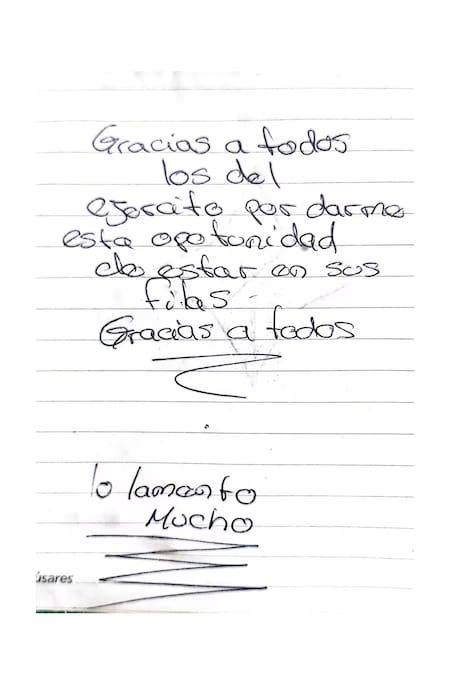 Gracias a todos
los del
ejercito por darme
esta opotonidad
de estar en sus
filas
Gracias a todos
lo lamento
Mucho
úsares